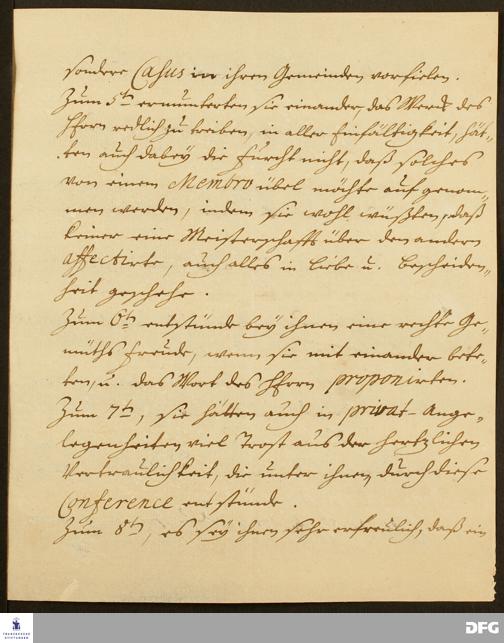 sondere Casus in ihren Gemeinden vorfielen.
Zum 5ten ermunterten sie einander, das Werck des
HErrn redlich zu treiben, in aller Einfältigkeit, hät-
ten auch dabeÿ die Furcht nicht, daß solches
von einem Membro übel möchte aufgenom-
men werden, indem sie wohl wüßten, daß
keiner eine Meisterschafft über den andern
affectirte, auch alles in Liebe u. Bescheiden-
heit geschehe.
Zum 6ten entstünde beÿ ihnen eine rechte Ge-
müths Freude, wenn sie mit einander bete-
ten, u. das Wort des HErrn proponirten.
Zum 7ten, sie hätten auch in privat-Ange-
legenheiten viel Trost aus der hertzlichen
Vertraulichkeit, die unter ihnen durch diese
Conference entstünde.
Zum 8ten, es seÿ ihnen sehr erfreulich, daß ein
FRANCKESCHE
STIFTUNGEN
DFG